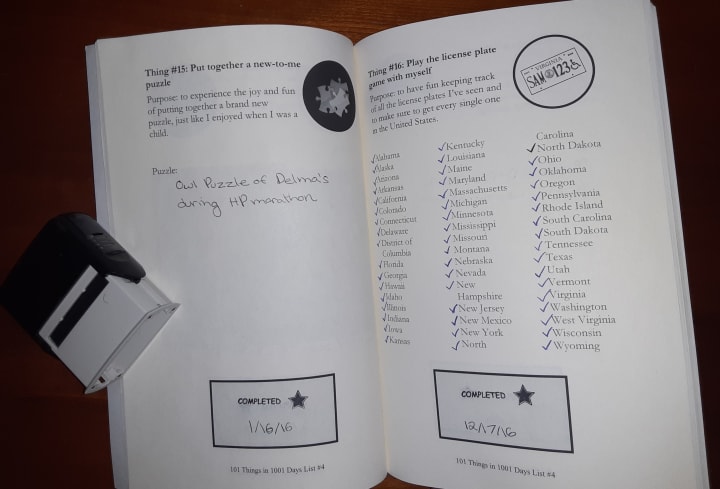 Thing #15: Put together a new-to-me
puzzle
Purpose: to experience the joy and fun
of putting together a brand new
puzzle, just like I enjoyed when I was a
child.
Puzzle:
Owl Puzzle of Delma's
during HP marathon
COMPLETED
1/16/16
101 Things in 1001 Days List #4
Thing #16: Play the license plate
game with myself
Purpose: to have fun keeping track
of all the license plates I've seen and
to make sure to get every single one
in the United States.
VIRGINIA
SAM 123
✓Alabama
✓Alaska
✓Arizona
✓Arkansas
✓California
✓Colorado
✓Connecticut
✓Delaware
✓District of
Columbia
✓Florida
✓Georgia
✓Hawaii
✓Idaho
✓Illinois
✓Indiana
✓Iowa
✓Kansas
✓Kentucky
✓Louisiana
✓Maine
✓Maryland
✓Massachusetts
✓Michigan
✓Minnesota
✓Mississippi
✓Missouri
✓Montana
✓Nebraska
✓Nevada
✓New
Hampshire
✓New Jersey
✓New Mexico
✓New York
✓North
Carolina
✓North Dakota
✓Ohio
✓Oklahoma
✓Oregon
✓Pennsylvania
✓Rhode Island
✓South Carolina
✓South Dakota
✓Tennessee
✓Texas
✓Utah
✓Vermont
✓Virginia
✓Washington
✓West Virginia
✓Wisconsin
✓Wyoming
COMPLETED
12/17/16
101 Things in 1001 Days List #4